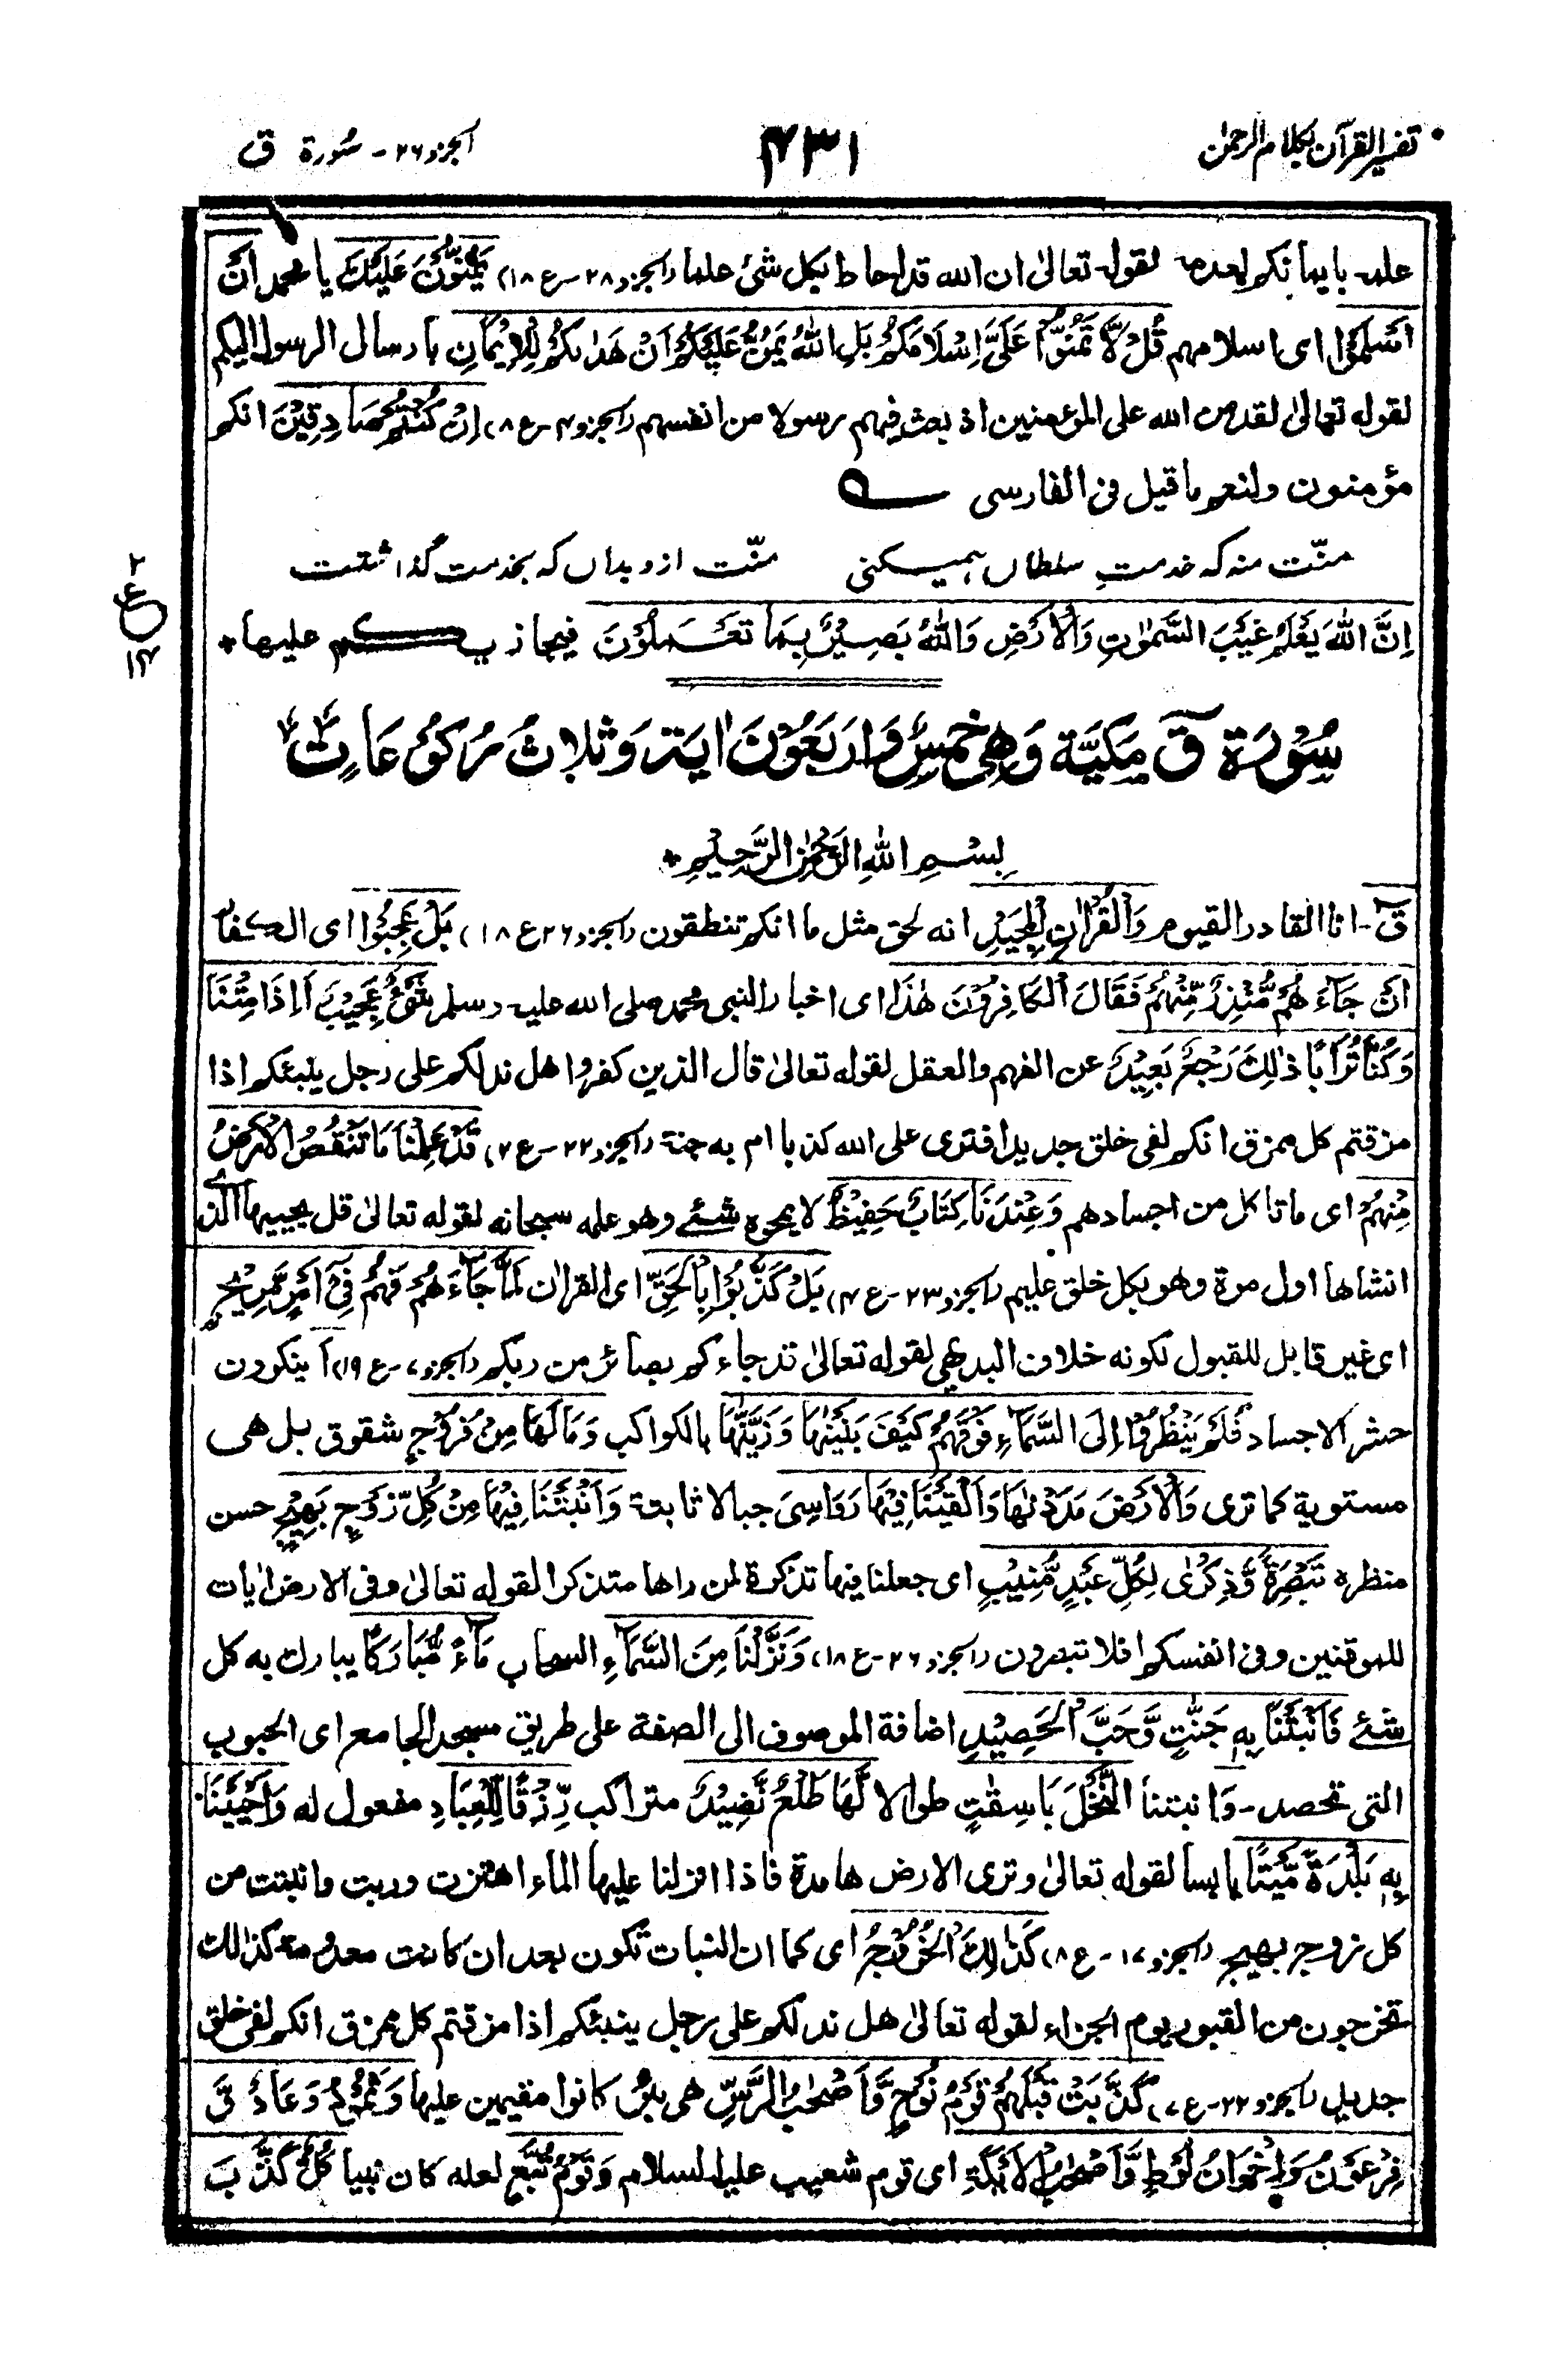 تفسير القرآن بكلام الرحمٰن
٤٣١
الجزو ٢٦ - سُورة ق
عليه بايمانكم لعدمه لقوله تعالىٰ ان الله قد احاط بكل شئ علما (الجزو ٢٨ - ع ١٨) يَمُنُّوْنَ عَلَيْكَ يا محمد اَنْ
اَسْلَمُوْا اى اسلامهم قُلْ لَّا تَمُنُّوْا عَلَىَّ اِسْلَامَكُمْ بَلِ اللّٰهُ يَمُنُّ عَلَيْكُمْ اَنْ هَدٰىكُمْ لِلْاِيْمَانِ بارسال الرسول اليكم
لقوله تعالىٰ لقد من الله على المؤمنين اذ بعث فيهم رسولا من انفسهم (الجزو ٤ - ع ٨) اِنْ كُنْتُمْ صَادِقِيْنَ انكم
مؤمنون ولنعم ما قيل فى الفارسى
منّت منہ کہ خدمتِ سلطاں ہمیکنی منّت ازو بداں کہ بخدمت گذاشتت
اِنَّ اللّٰهَ يَعْلَمُ غَيْبَ السَّمٰوٰتِ وَالْاَرْضِ وَاللّٰهُ بَصِيْرٌ بِمَا تَعْمَلُوْنَ فيجازيكم عليها٭
٢
ع
١٤
سُوْرَة قٓ مَكِيَّة وَهِىَ خَمْسٌ وَارْبَعُوْنَ اٰيَة وَثلاثُ رُكُوْعَاتٍ
بِسْمِ اللّٰهِ الرَّحْمٰنِ الرَّحِيْمِ٭
قٓ - انا القادر القيوم وَالْقُرْاٰنِ الْمَجِيْدِ انه لحق مثل ما انكم تنطقون (الجزو ٢٦ ع ١٨) بَلْ عَجِبُوْا اى الكفار
اَنْ جَآءَهُمْ مُّنْذِرٌ مِّنْهُمْ فَقَالَ الْكَافِرُوْنَ هٰذَا اى اخبار النبى محمد صلى الله عليه وسلم شَىْءٌ عَجِيْبٌ ءَاِذَا مِتْنَا
وَكُنَّا تُرَابًا ذٰلِكَ رَجْعٌ بَعِيْدٌ عن الفهم والعقل لقوله تعالىٰ قال الذين كفروا هل ندلكم على رجل ينبئكم اذا
مزقتم كل ممزق انكم لفى خلق جديد افترى على الله كذبا ام به جنة (الجزو ٢٢ - ع ٧) قَدْ عَلِمْنَا مَا تَنْقُصُ الْاَرْضُ
مِنْهُمْ اى ما تاكل من اجسادهم وَعِنْدَنَا كِتَابٌ حَفِيْظٌ لا يمحوه شئے وهو علمه سبحانه لقوله تعالىٰ قل يحييها الذى
انشاها اول مرة وهو بكل خلق عليم (الجزو ٢٣ - ع ٤) بَلْ كَذَّبُوْا بِالْحَقِّ اى القراٰن لَمَّا جَآءَهُمْ فَهُمْ فِىْٓ اَمْرٍ مَّرِيْجٍ
اى غير قابل للقبول لكونه خلاف البديهى لقوله تعالىٰ قد جاءكم بصائر من ربكم (الجزو ٧ - ع ١٩) أ ينكرون
حشر الاجساد فَلَمْ يَنْظُرُوْٓا اِلَى السَّمَآءِ فَوْقَهُمْ كَيْفَ بَنَيْنٰهَا وَزَيَّنّٰهَا بالكواكب وَمَا لَهَا مِنْ فُرُوْجٍ شقوق بل هى
مستوية كما ترى وَالْاَرْضَ مَدَدْنٰهَا وَاَلْقَيْنَا فِيْهَا رَوَاسِىَ جبالا ثابتة وَاَنْبَتْنَا فِيْهَا مِنْ كُلِّ زَوْجٍ بَهِيْجٍ حسن
منظره تَبْصِرَةً وَّذِكْرٰى لِكُلِّ عَبْدٍ مُّنِيْبٍ اى جعلنا فيها تذكرة لمن راها متذكرا لقوله تعالىٰ وفى الارض اٰيات
للموقنين وفى انفسكم افلا تبصرون (الجزو ٢٦ - ع ١٨) وَنَزَّلْنَا مِنَ السَّمَآءِ السحاب مَآءً مُّبَارَكًا يبارك به كل
شئے فَاَنْبَتْنَا بِهٖ جَنّٰتٍ وَّحَبَّ الْحَصِيْدِ اضافة الموصوف الى الصفة على طريق مسجد الجامع اى الحبوب
التى تحصد - وَانبتنا النَّخْلَ بَاسِقٰتٍ طوالا لَّهَا طَلْعٌ نَّضِيْدٌ متراكب رِّزْقًا لِّلْعِبَادِ مفعول له وَاَحْيَيْنَا
بِهٖ بَلْدَةً مَّيْتًا يابسا لقوله تعالىٰ وترى الارض هامدة فاذا انزلنا عليها الماء اهتزت وربت وانبتت من
كل زوج بهيج (الجزو ١٧ - ع ٨) كَذٰلِكَ الْخُرُوْجُ اى كما ان النبات تكون بعد ان كانت معدومة كذالك
تخرجون من القبور يوم الجزاء لقوله تعالىٰ هل ندلكم على رجل ينبئكم اذا مزقتم كل ممزق انكم لفى خلق
جديد (الجزو ٢٢ - ع ٧) كَذَّبَتْ قَبْلَهُمْ قَوْمُ نُوْحٍ وَّاَصْحٰبُ الرَّسِّ هى بئر كانوا مقيمين عليها وَثَمُوْدُ وَعَادٌ وَّ
فِرْعَوْنُ وَاِخْوَانُ لُوْطٍ وَّاَصْحٰبُ الْاَيْكَةِ اى قوم شعيب عليه السلام وَقَوْمُ تُبَّعٍ لعله كان نبيا كُلٌّ كَذَّبَ